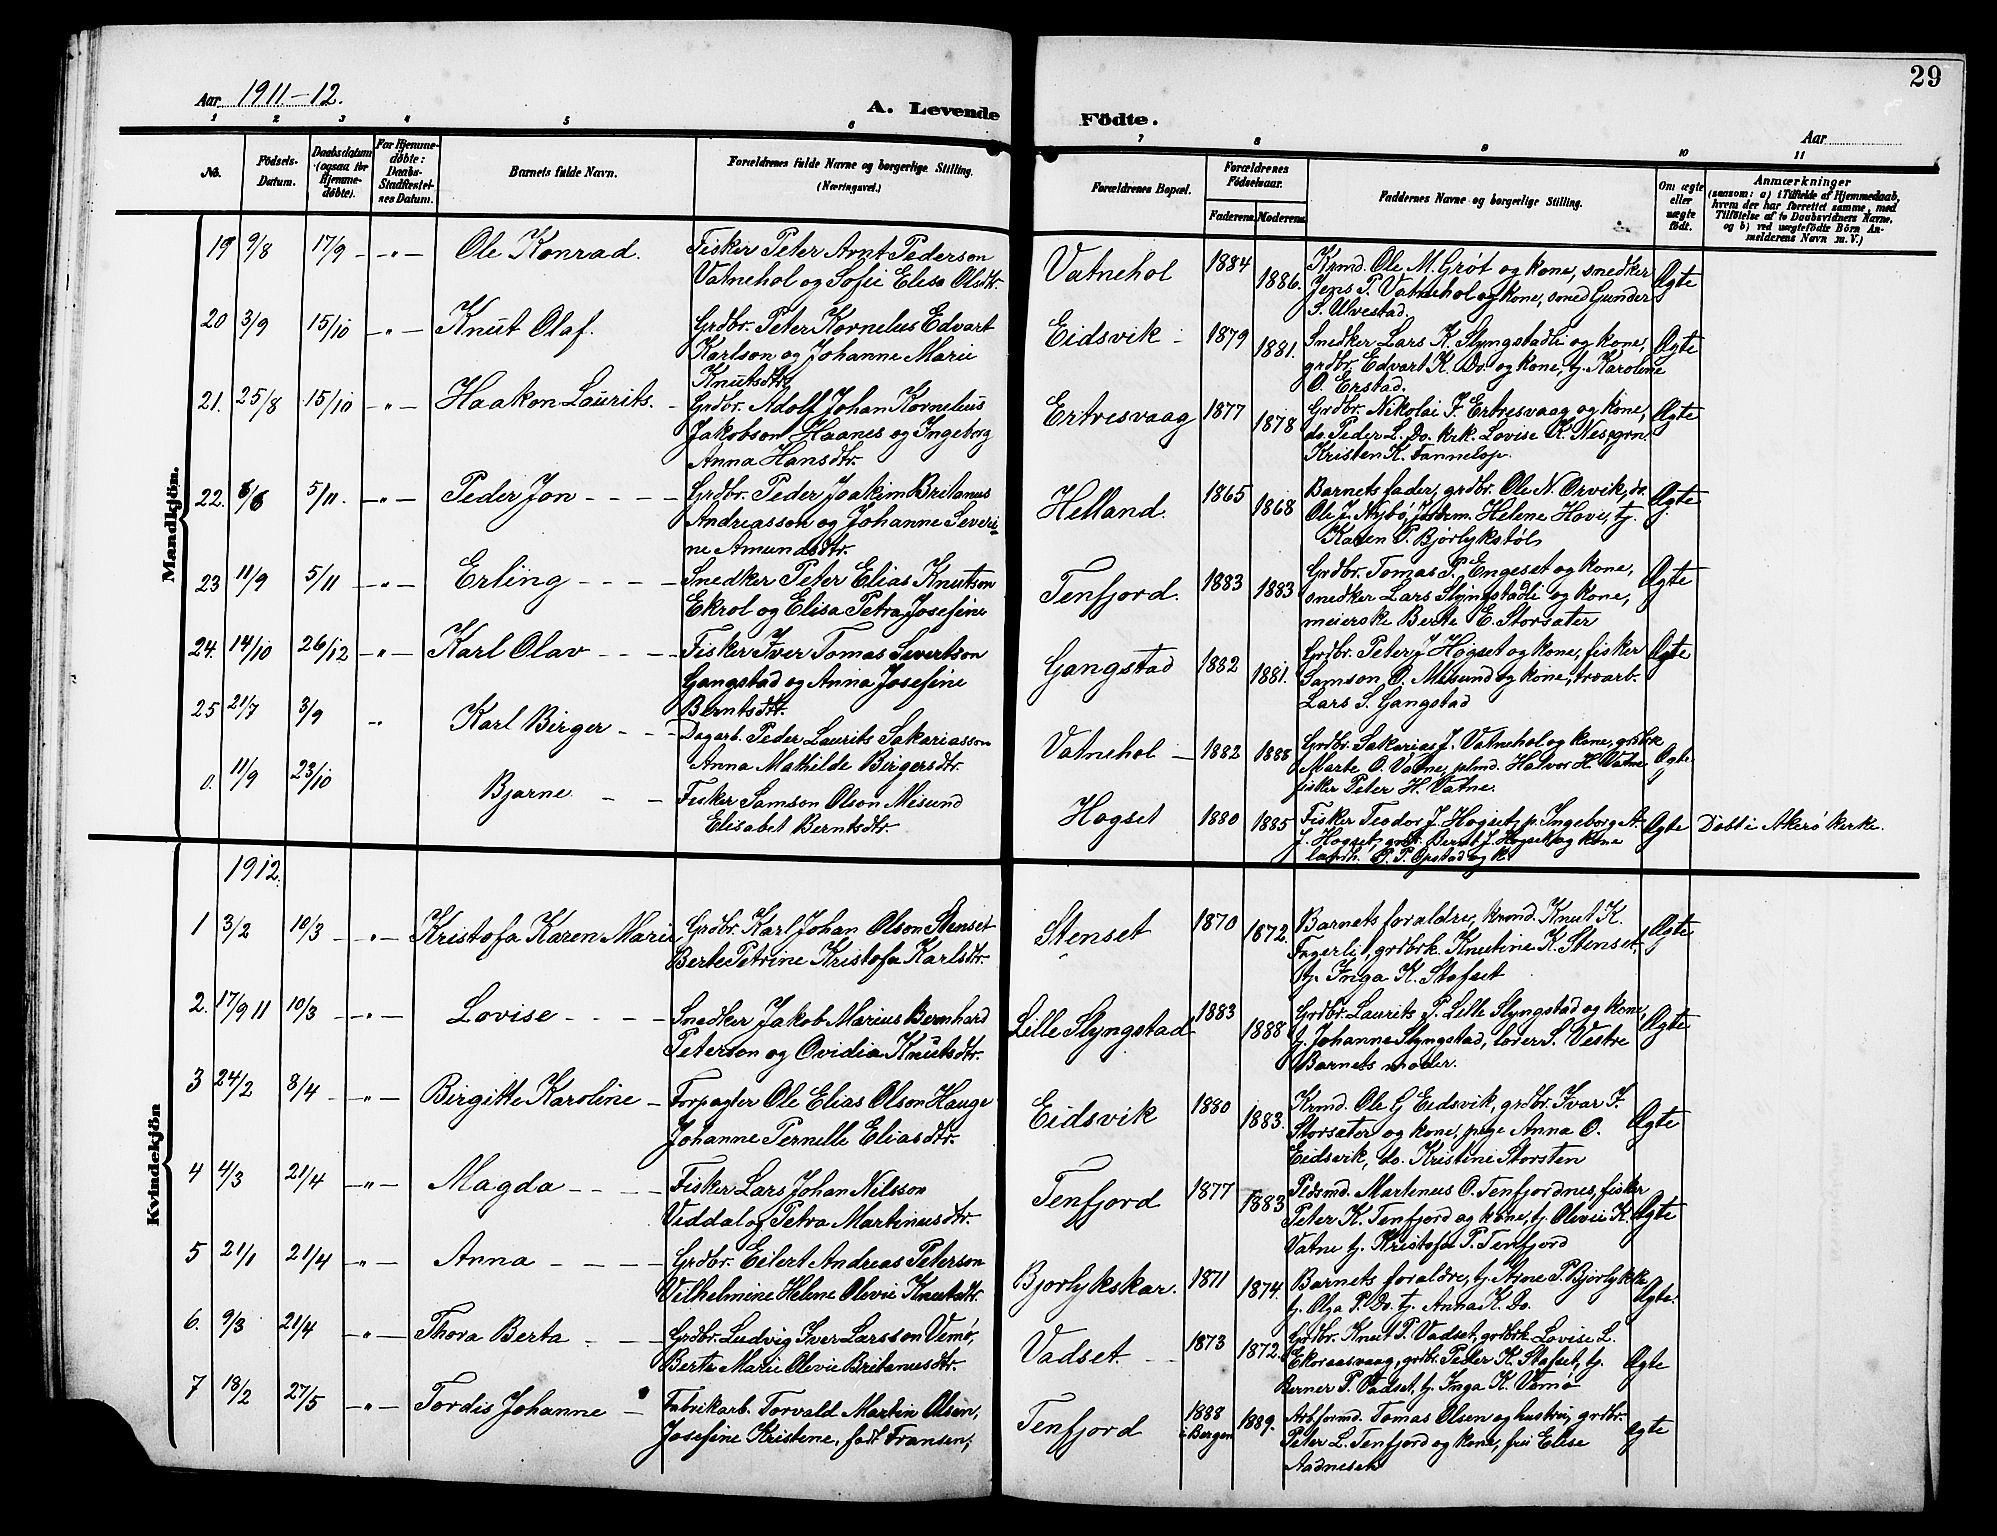 29
Aar 1911-12.
A. Levende Födte.
Aar
1 2 3 4 5 6 7 8 9 10 11
No.
Födsels-Datum.
Daabsdatum (ogsaa for Hjemmedøbte).
For Hjemmedøbte: Daabs-Stadfæstelses Datum.
Barnets fulde Navn.
Forældrenes fulde Navne og borgerlige Stilling. (Næringsvei.)
Forældrenes Bopæl.
Forældrenes Födselsaar.
Faderens. Moderens.
Faddernes Navne og borgerlige Stilling.
Om ægte eller uægte født.
Anmærkninger
(saasom: a) i Tilfælde af Hjemmedaab,
hvem der har forrettet samme, med
Tilföielse af to Daabsvidners Navne,
og b) ved uægtefödte Börn An-
melderens Navn m. V.)
Mandkjön.
19 9/8 17/9 - " - Ole Konrad. Fisker Peter Arnt Pederson
Vatnehol og Sofie Elise Olsdtr.
Vatnehol 1884 1886. Krmd. Ole M. Grøt og kone, snedker
Jens P. Vatnehol og kone, sned Gunder
S. Ulvestad. Ægte
20 3/9 15/10 - " - Knut Olaf. Grdbr. Peter Kornelus Edvart
Karlson og Johanne Marie
Knutsdtr.
Eidsvik - 1879 1881. Snedker Lars K. Slyngstadli og kone,
grdbr. Edvart K. Do. og kone, tj. Karoline
O. Erstad. Ægte
21. 25/8 15/10 - " - Haakon Laurits. - Grdbr. Adolf Johan Kornelius
Jakobson Haanes og Ingeborg
Anna Hansdtr.
Ertresvaag 1877 1878 Grdbr. Nikolai J. Ertresvaag og kone,
do. Peder L. Do. krk. Lovise K. Nes, grn.
Kristen K. Tannelop. Ægte
22. 6/6 5/11. - " - Peder Jon - - - - Grdbr. Peder Joakim Britanus
Andreasson og Johanne Severi-
ne Amundsdtr.
Helland. 1865 1868 Barnets fader, grdbr. Ole N. Orvik, do.
Ole J. Nybø, Helene Hove, tj.
Karen P. Bjørlykstøl. Ægte
23 11/9 5/11 - " - Erling - - - - Snedker Peter Elias Knutson
Ekrol og Elisa Petra Josefine
Tenfjord. 1883 1883 Grdbr. Tomas P. Engeset og kone,
snedker Lars Slyngstadli og kone,
meierske Berte E. Storsæter Ægte
24. 14/10 26/12 - " - Karl Olav - - - - Fisker Iver Tomas Severtson
Gangstad og Anna Josefine
Berntsdtr.
Gangstad 1882 1881. Grdbr. Peter J. Hogset og kone, fisker
Samson O. Misund og kone, troarb.
Lars S. Gangstad Ægte
25 21/7 3/9 " Karl Birger - - - Dagarb. Peder Laurits Sakariasson
Anna Mathilde Birgersdtr.
Vatnehol - 1882 1888 Grdbr. Sakarias J. Vatnehol og kone, grdbrk
Marte O. Vatne, plmd. Halvor H. Vatne
fisker Peter H. Vatne. Ægte
0. 11/9 23/10 Bjarne - - Fisker Samson Olson Misund
Elisabet Berntsdtr.
Hogset 1880 1885 Fisker Teodor J. Hogset, p. Ingeborg A.
J. Hogset, grdbr. Bernt J. Hogset og kone
landh. P. P. Opstad og k. Ægte Døbt i Akerø kirke.
1912.
Kvindekjön
1 3/2 10/3 - " - Kristofa Karen Marie, Grdbr. Karl Johan Olson Stenset
Berte Petrine Kristofa Karlsdtr.
Stenset 1870 1872. Barnets foraldre, krmd. Knut K.
Fagerli, grdbrk. Knutine K. Stenset,
tj. Inga K. Stafset Ægte
2. 17/9 11 10/3 - " - Lovise - - - - Snedker Jakob Marius Bernhard
Peterson og Ovidia Knutsdtr.
Lille Slyngstad 1883 1888 Grdbr. Laurits P. Lille Slyngstad og kone,
tj. Johanne Slyngstad, lærer S. Vestre
Barnets moder. Ægte
3 24/2 8/4 - " - Birgitte Karoline - Forpagter Ole Elias Olson Hauge
Johanne Pernelle Eliasdtr.
Eidsvik 1880 1883. Krmd. Ole G Eidsvik, grdbr. Ivar I.
Storsæter og kone, pige Anna O.
Eidsvik, do. Kristine Storsten Ægte
4 4/3 21/4 - " - Magda - - - - Fisker Lars Johan Nilsson
Viddal og Petra Martinusdtr.
Tenfjord 1877 1883 Pedsmd. Martinus O. Tenfjordnes, fisker
Peter K. Tenfjord og kone, tj. Olivie K.
Vatne tj. Kristofa P. Tenfjord Ægte
5 21/1 21/4 - " - Anna - - - - Grdbr. Eilert Andreas Peterson
Vilhelmine Helene Olivie Knutsdtr.
Bjorlykskar. 1871 1874. Barnets foraldre, tj. Arne P. Bjørlykke
tj. Olga P. Do. tj. Anna K. Do. Ægte.
6. 9/3 21/4 - " - Thora Berta - - - Grdbr. Ludvig Iver Larsson Vemø,
Berte Marie Olivie Britanusdtr.
Vadset. - - 1873 1872. Grdbr. Knut P. Vadset, grdbrk. Lovise L.
Ekornsvaag, grdbr. Peder K. Stafset, tj.
Berner P. Vadset, tj. Inga K. Vemø Ægte
7 18/2 27/5 - " - Tordis Johanne - Fabrikarb. Torvald Martin Olsen,
Josefine Kristine, født Fransen,
Tenfjord 1888 i Bergen 1889. Arb.formd. Tomas Olsen og hustru, grdbr.
Peter L. Tenfjord og kone, fru Elise
Aadnesen Ægte